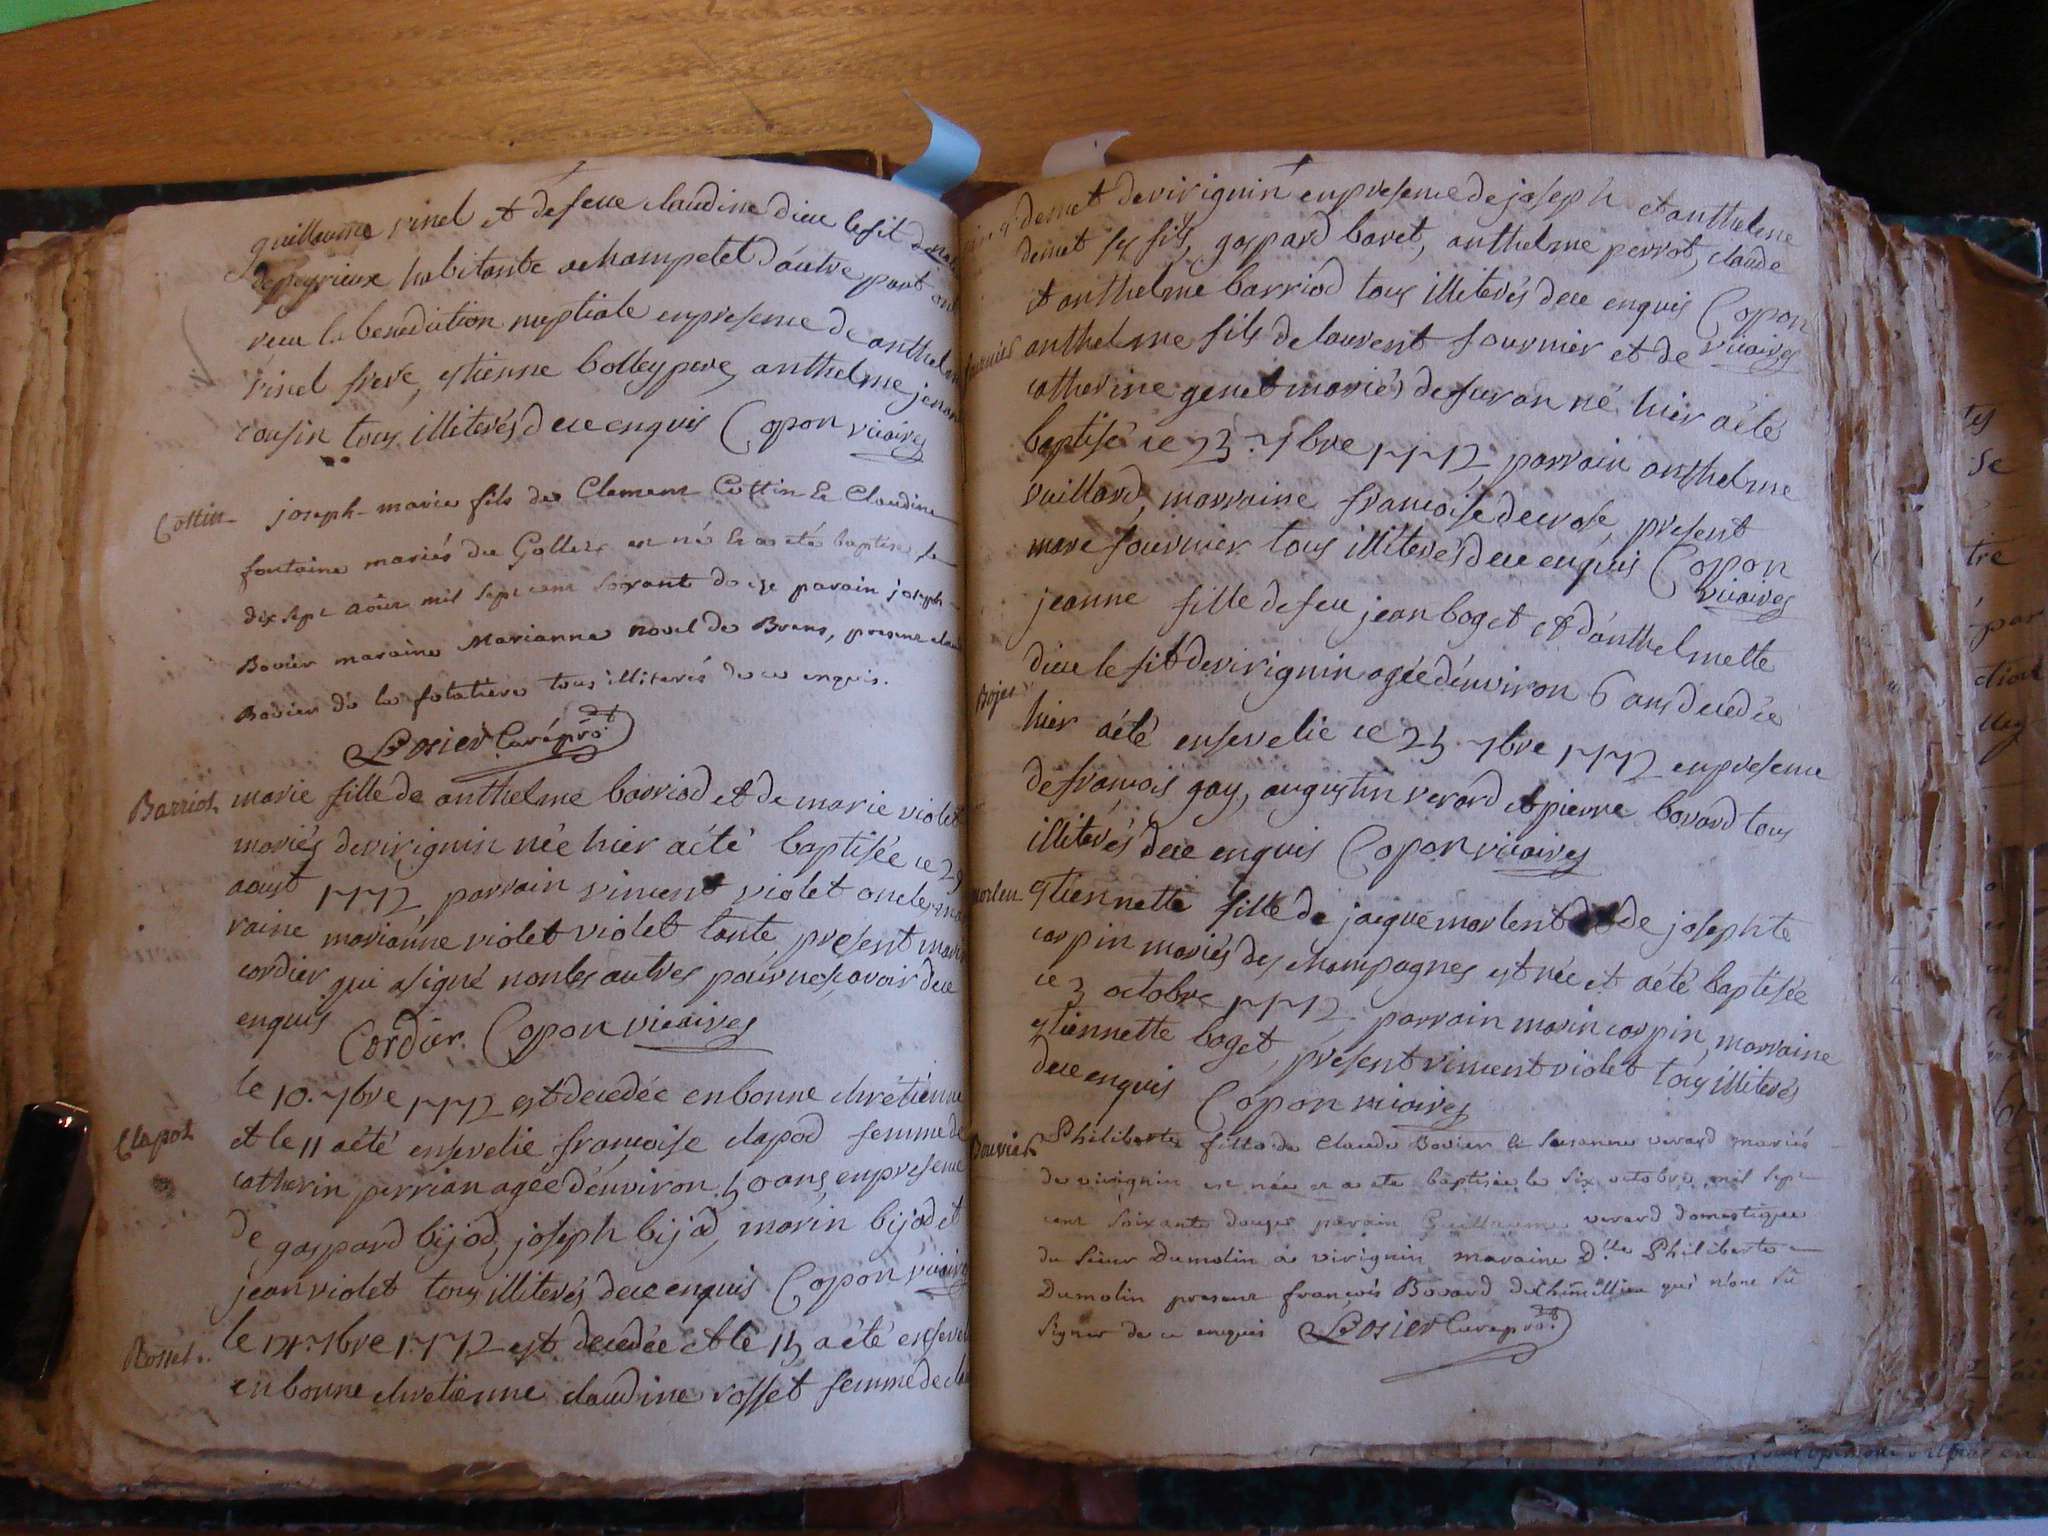 guillaume vinel et de feue claudine dieu le fit
de peyrieux habitante a champetel d'autre part ont
reçu la benediction nuptiale en presence de anthelme
vinel frere, estienne bolley pere, anthelme
cousin tous illiterés de ce enquis Copon vicaires
Cottin joseph-marie fils de Clement Cottin & Claudine
fontaine mariés du Gollex est né & a eté baptisé le
dix sept aout mil sept cent soixant douze parain joseph
Bovier maraine Marianne novel de Brens, present
Bovier de la folatiere tous illiterés de ce enquis.
Losier Curé prô.
Barriod marie fille de anthelme barriod et de marie violet
mariés de virignin née hier a été baptisée ce 29
aoust 1772, parrain vincent violet oncle, mar
raine marianne violet violet tante, present marin
cordier qui a signé non les autres pour ne sçavoir de ce
enquis Cordier Copon vicaires
Clapod le 10. 7bre 1772 est decedée en bonne chrétienne
et le 11 a été ensevelie françoise clapod femme de
catherin perrian agée d'environ 50 ans, en presence
de gaspard bijod, joseph bijod, marin bijod et
jean violet tous illiterés de ce enquis Copon vicaires
Rosset le 14. 7bre 1772 est decedée et le 15 a été ensevelie
en bonne chretienne claudine rosset femme de
demet de virignin en presence de joseph et anthelme
demet ses fils, gaspard baret, anthelme perrot, claude
et anthelme barriod tous illiterés de ce enquis Copon
vicaires
fournier anthelme fils de laurent fournier et de
catherine genet mariés de furan né hier a été
baptisé ce 23. 7bre 1772, parrain anthelme
vuillard, marraine françoise decrose, present
marc fournier tous illiterés de ce enquis Copon
vicaires
jeanne fille de feu jean boget et d'anthelmette
Boget dieu le fit de virignin agée d'environ 6 ans decedée
hier a été ensevelie ce 25. 7bre 1772 en presence
de françois gay, augustin verard et pierre bovard tous
illiterés de ce enquis Copon vicaires
morlen estiennette fille de jacque morlent et de josephte
carpin mariés des champagnes est née et a été baptisée
ce 3 octobre 1772, parrain marin carpin, marraine
estiennette boget, present vincent violet tous illiterés
de ce enquis Copon vicaires
Bouvier Philiberte fille de Claude Bovier & Susanne verard mariés
de virignin est née et a eté baptisée le six octobre mil sept
cent soixante douze parain Guillaume verard domestique
du Sieur Dumolin a virignin maraine Dlle Philiberte
Dumolin present françois Bovard de Chemillieu qui n'ont sû
signer de ce enquis Losier Curé prô.